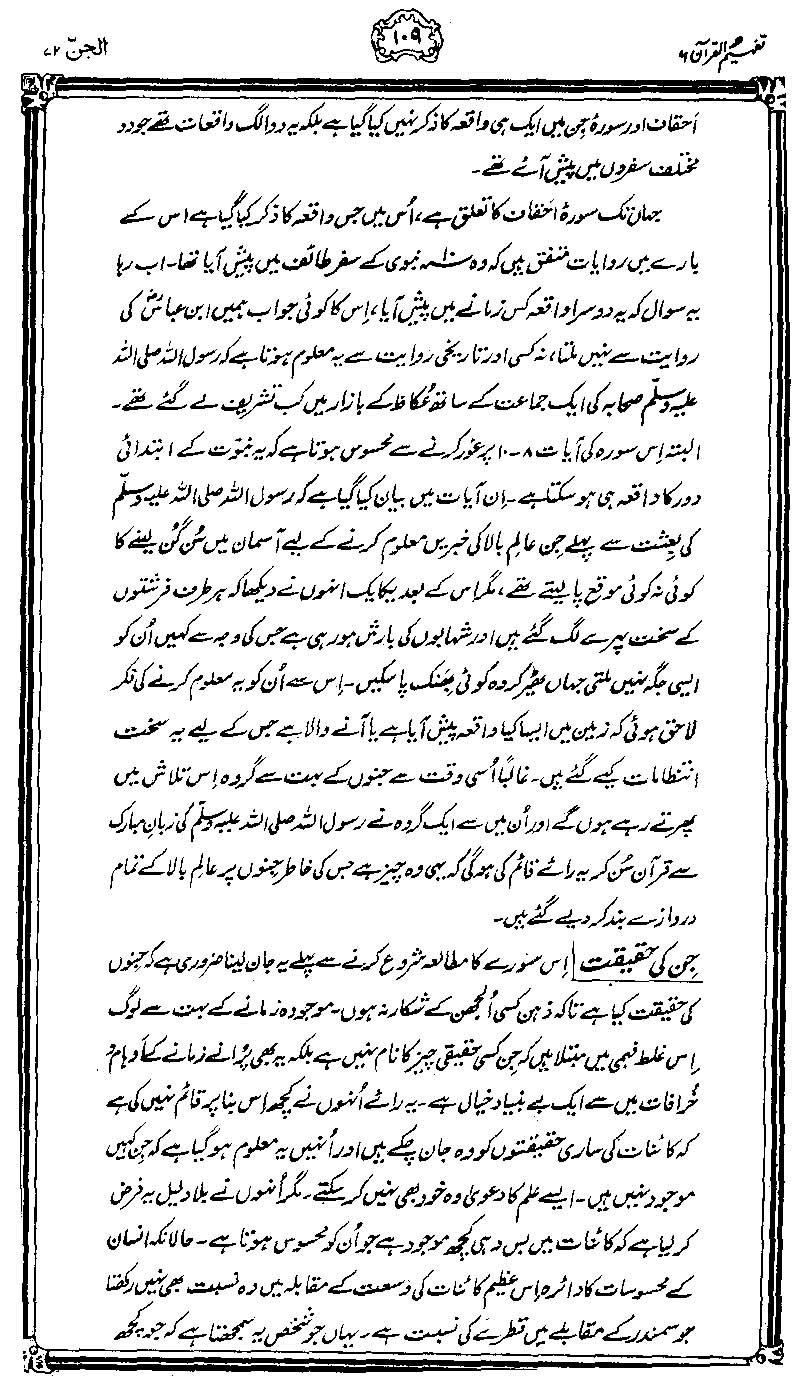 تفہیم القرآن ۶
۱۰۹
الجنّ ۷۲
اَحقاف اور سورۂ جِن میں ایک ہی واقعہ کا ذکر نہیں کیا گیا ہے بلکہ یہ دو الگ واقعات تھے جو دو
مختلف سفروں میں پیش آئے تھے۔
جہاں تک سورۂ اَحقاف کا تعلق ہے، اُس میں جس واقعہ کا ذکر کیا گیا ہے اس کے
بارے میں روایات متفق ہیں کہ وہ سنلہ نبوی کے سفر طائف میں پیش آیا تھا۔ اب رہا
یہ سوال کہ یہ دوسرا واقعہ کس زمانے میں پیش آیا، اِس کا کوئی جواب ہمیں ابن عباسؓ کی
روایت سے نہیں ملتا، نہ کسی اور تاریخی روایت سے یہ معلوم ہوتا ہے کہ رسول اللہ صلی اللہ
علیہ وسلّم صحابہ کی ایک جماعت کے ساتھ عُکاظ کے بازار میں کب تشریف لے گئے تھے۔
البتہ اِس سورہ کی آیات ۸-۱۰ پر غور کرنے سے محسوس ہوتا ہے کہ یہ نبوّت کے ابتدائی
دور کا واقعہ ہی ہو سکتا ہے۔ اِن آیات میں بیان کیا گیا ہے کہ رسول اللہ صلی اللہ علیہ وسلّم
کی بِعثت سے پہلے جِن عالمِ بالا کی خبریں معلوم کرنے کے لیے آسمان میں سُن گُن لینے کا
کوئی نہ کوئی موقع پا لیتے تھے، مگر اس کے بعد یکایک انہوں نے دیکھا کہ ہر طرف فرشتوں
کے سخت پہرے لگ گئے ہیں اور شہابوں کی بارش ہو رہی ہے جس کی وجہ سے کہیں اُن کو
ایسی جگہ نہیں ملتی جہاں ٹھیر کر وہ کوئی بھِنک پا سکیں۔ اِس سے اُن کو یہ معلوم کرنے کی فکر
لاحق ہوئی کہ زمین میں ایسا کیا واقعہ پیش آیا ہے یا آنے والا ہے جس کے لیے یہ سخت
انتظامات کیے گئے ہیں۔ غالباً اُسی وقت سے جنوں کے بہت سے گروہ اِس تلاش میں
پھرتے رہے ہوں گے اور اُن میں سے ایک گروہ نے رسول اللہ صلی اللہ علیہ وسلّم کی زبانِ مبارک
سے قرآن سُن کر یہ رائے قائم کی ہوگی کہ یہی وہ چیز ہے جس کی خاطر جنوں پر عالمِ بالا کے تمام
دروازے بند کر دیے گئے ہیں۔
جِن کی حقیقت اِس سورے کا مطالعہ شروع کرنے سے پہلے یہ جان لینا ضروری ہے کہ جنوں
کی حقیقت کیا ہے تاکہ ذہن کسی اُلجھن کے شکار نہ ہوں۔ موجودہ زمانے کے بہت سے لوگ
اِس غلط فہمی میں مبتلا ہیں کہ جِن کسی حقیقی چیز کا نام نہیں ہے بلکہ یہ بھی پُرانے زمانے کے اَوہام و
خُرافات میں سے ایک بے بنیاد خیال ہے۔ یہ رائے اُنہوں نے کچھ اِس بنا پر قائم نہیں کی ہے
کہ کائنات کی ساری حقیقتوں کو وہ جان چکے ہیں اور اُنہیں یہ معلوم ہو گیا ہے کہ جِن کہیں
موجود نہیں ہیں۔ ایسے علم کا دعویٰ وہ خود بھی نہیں کر سکتے۔ مگر اُنہوں نے بلا دلیل یہ فرض
کر لیا ہے کہ کائنات میں بس وہی کچھ موجود ہے جو اُن کو محسوس ہوتا ہے۔ حالانکہ انسان
کے محسوسات کا دائرہ اِس عظیم کائنات کی وسعت کے مقابلہ میں وہ نسبت بھی نہیں رکھتا
جو سمندر کے مقابلے میں قطرے کی نسبت ہے۔ یہاں جو شخص یہ سمجھتا ہے کہ جو کچھ